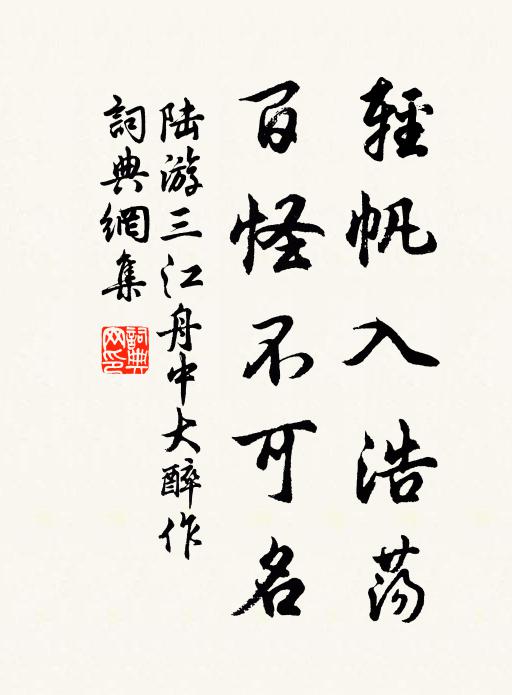 輕帆入浩荡
百怪不可名
陆游三江舟中大醉作
詞典網集
詞典網印